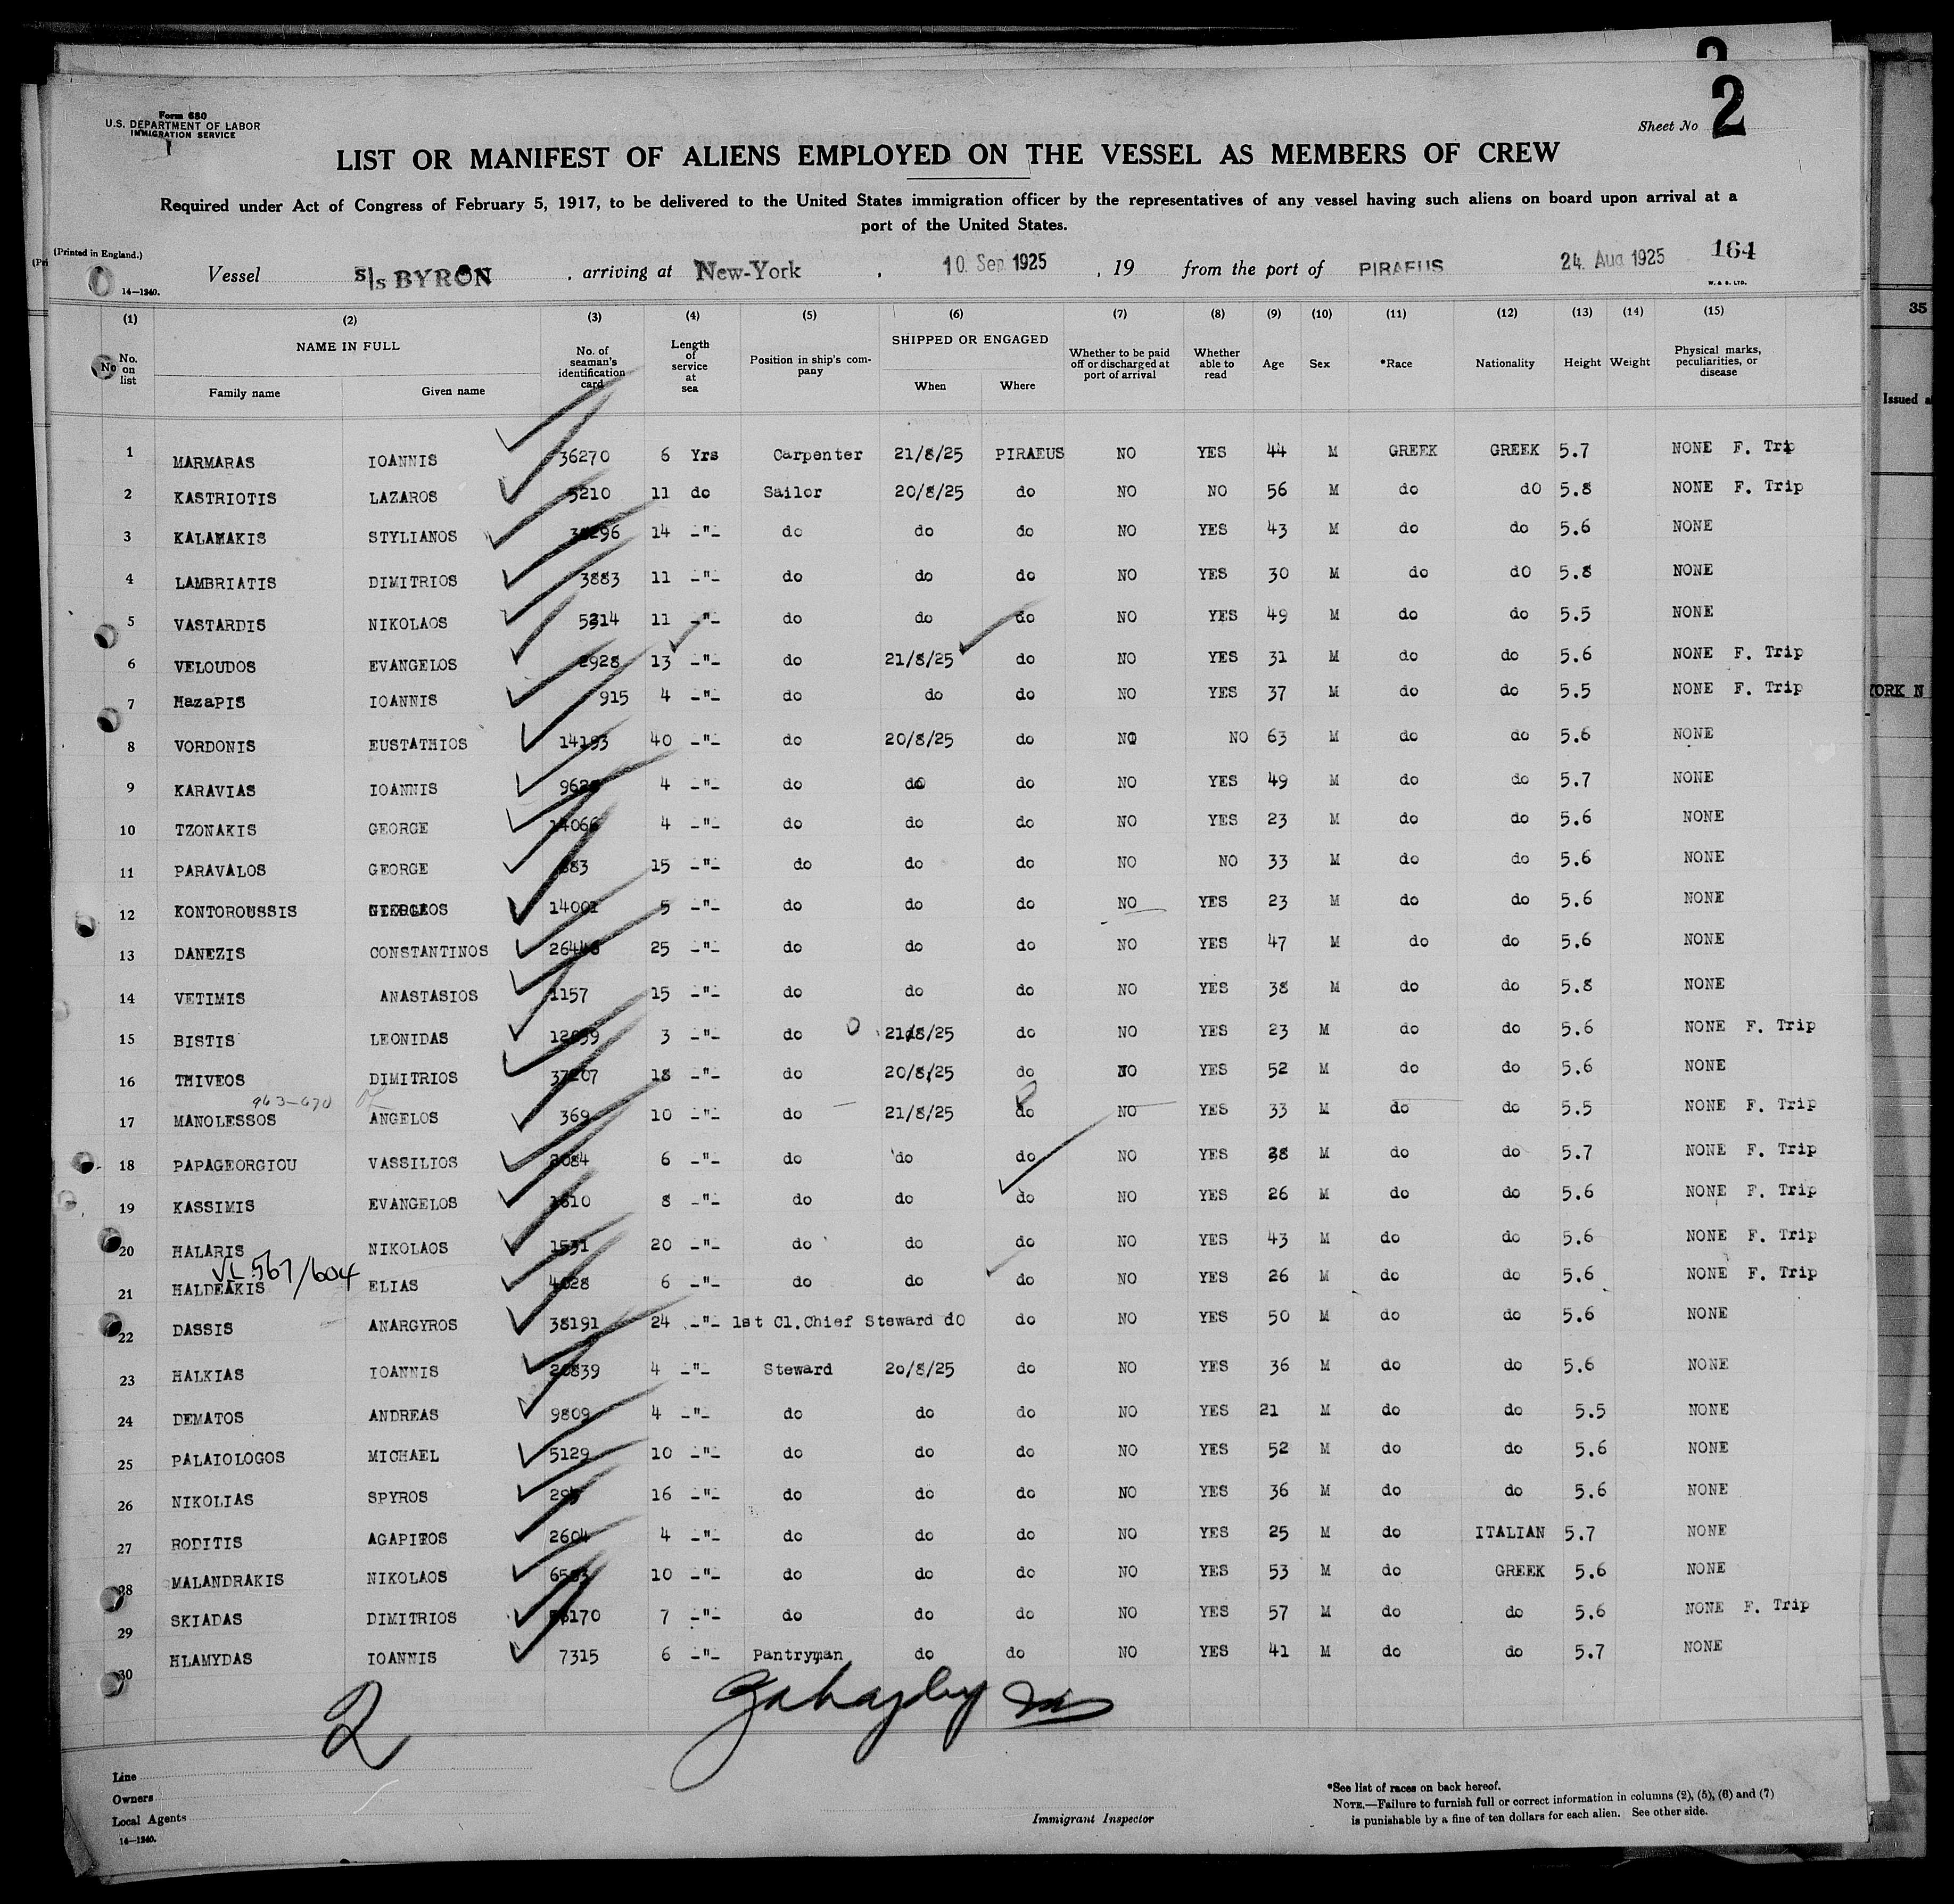 2
Form 680
U.S. DEPARTMENT OF LABOR
IMMIGRATION SERVICE
Sheet No 2
LIST OR MANIFEST OF ALIENS EMPLOYED ON THE VESSEL AS MEMBERS OF CREW
Required under Act of Congress of February 5, 1917, to be delivered to the United States immigration officer by the representatives of any vessel having such aliens on board upon arrival at a
port of the United States.
(Printed in England.)
Vessel S/S BYRON , arriving at New-York , 10. Sep 1925 , 19 from the port of PIRAEUS 24. Aug 1925 164
14—1240. W. & S. LTD.
(1) (2) (3) (4) (5) (6) (7) (8) (9) (10) (11) (12) (13) (14) (15)
No. on list NAME IN FULL Family name Given name No. of seaman's identification card Length of service at sea Position in ship's company SHIPPED OR ENGAGED When Where Whether to be paid off or discharged at port of arrival Whether able to read Age Sex *Race Nationality Height Weight Physical marks, peculiarities, or disease
1 MARMARAS IOANNIS 36270 6 Yrs Carpenter 21/8/25 PIRAEUS NO YES 44 M GREEK GREEK 5.7 NONE F. Trip
2 KASTRIOTIS LAZAROS 5210 11 do Sailor 20/8/25 do NO NO 56 M do do 5.8 NONE F. Trip
3 KALAMAKIS STYLIANOS 14 -"- do do do NO YES 43 M do do 5.6 NONE
4 LAMBRIATIS DIMITRIOS 3883 11 -"- do do do NO YES 30 M do do 5.8 NONE
5 VASTARDIS NIKOLAOS 5214 11 -"- do do do NO YES 49 M do do 5.5 NONE
6 VELOUDOS EVANGELOS 2928 13 -"- do 21/8/25 do NO YES 31 M do do 5.6 NONE F. Trip
7 MazaPIS IOANNIS 915 4 -"- do do do NO YES 37 M do do 5.5 NONE F. Trip
8 VORDONIS EUSTATHIOS 14193 40 -"- do 20/8/25 do NO NO 63 M do do 5.6 NONE
9 KARAVIAS IOANNIS 4 -"- do do do NO YES 49 M do do 5.7 NONE
10 TZONAKIS GEORGE 14066 4 -"- do do do NO YES 23 M do do 5.6 NONE
11 PARAVALOS GEORGE 15 -"- do do do NO NO 33 M do do 5.6 NONE
12 KONTOROUSSIS 14001 5 -"- do do do NO YES 23 M do do 5.6 NONE
13 DANEZIS CONSTANTINOS 26446 25 -"- do do do NO YES 47 M do do 5.6 NONE
14 VETIMIS ANASTASIOS 1157 15 -"- do do do NO YES 38 M do do 5.8 NONE
15 BISTIS LEONIDAS 3 -"- do 21/8/25 do NO YES 23 M do do 5.6 NONE F. Trip
16 THIVEOS DIMITRIOS 37207 18 -"- do 20/8/25 do NO YES 52 M do do 5.6 NONE
963-670
17 MANOLESSOS ANGELOS 369 10 -"- do 21/8/25 do NO YES 33 M do do 5.5 NONE F. Trip
18 PAPAGEORGIOU VASSILIOS 2084 6 -"- do do do NO YES 38 M do do 5.7 NONE F. Trip
19 KASSIMIS EVANGELOS 8 -"- do do do NO YES 26 M do do 5.6 NONE F. Trip
20 HALARIS NIKOLAOS 1531 20 -"- do do do NO YES 43 M do do 5.6 NONE F. Trip
VL 567/604
21 HALDEAKIS ELIAS 4628 6 -"- do do do NO YES 26 M do do 5.6 NONE F. Trip
22 DASSIS ANARGYROS 38191 24 -"- 1st Cl.Chief Steward do do NO YES 50 M do do 5.6 NONE
23 HALKIAS IOANNIS 20839 4 -"- Steward 20/8/25 do NO YES 36 M do do 5.6 NONE
24 DEMATOS ANDREAS 9809 4 -"- do do do NO YES 21 M do do 5.5 NONE
25 PALAIOLOGOS MICHAEL 5129 10 -"- do do do NO YES 52 M do do 5.6 NONE
26 NIKOLIAS SPYROS 16 -"- do do do NO YES 36 M do do 5.6 NONE
27 RODITIS AGAPITOS 2604 4 -"- do do do NO YES 25 M do ITALIAN 5.7 NONE
28 MALANDRAKIS NIKOLAOS 10 -"- do do do NO YES 53 M do GREEK 5.6 NONE
29 SKIADAS DIMITRIOS 7 -"- do do do NO YES 57 M do do 5.6 NONE F. Trip
30 HLAMYDAS IOANNIS 7315 6 -"- Pantryman do do NO YES 41 M do do 5.7 NONE
2
Line
Owners
Local Agents
14—1240.
Immigrant Inspector
*See list of races on back hereof.
NOTE.—Failure to furnish full or correct information in columns (2), (5), (6) and (7)
is punishable by a fine of ten dollars for each alien. See other side.
35
Issued a
YORK N